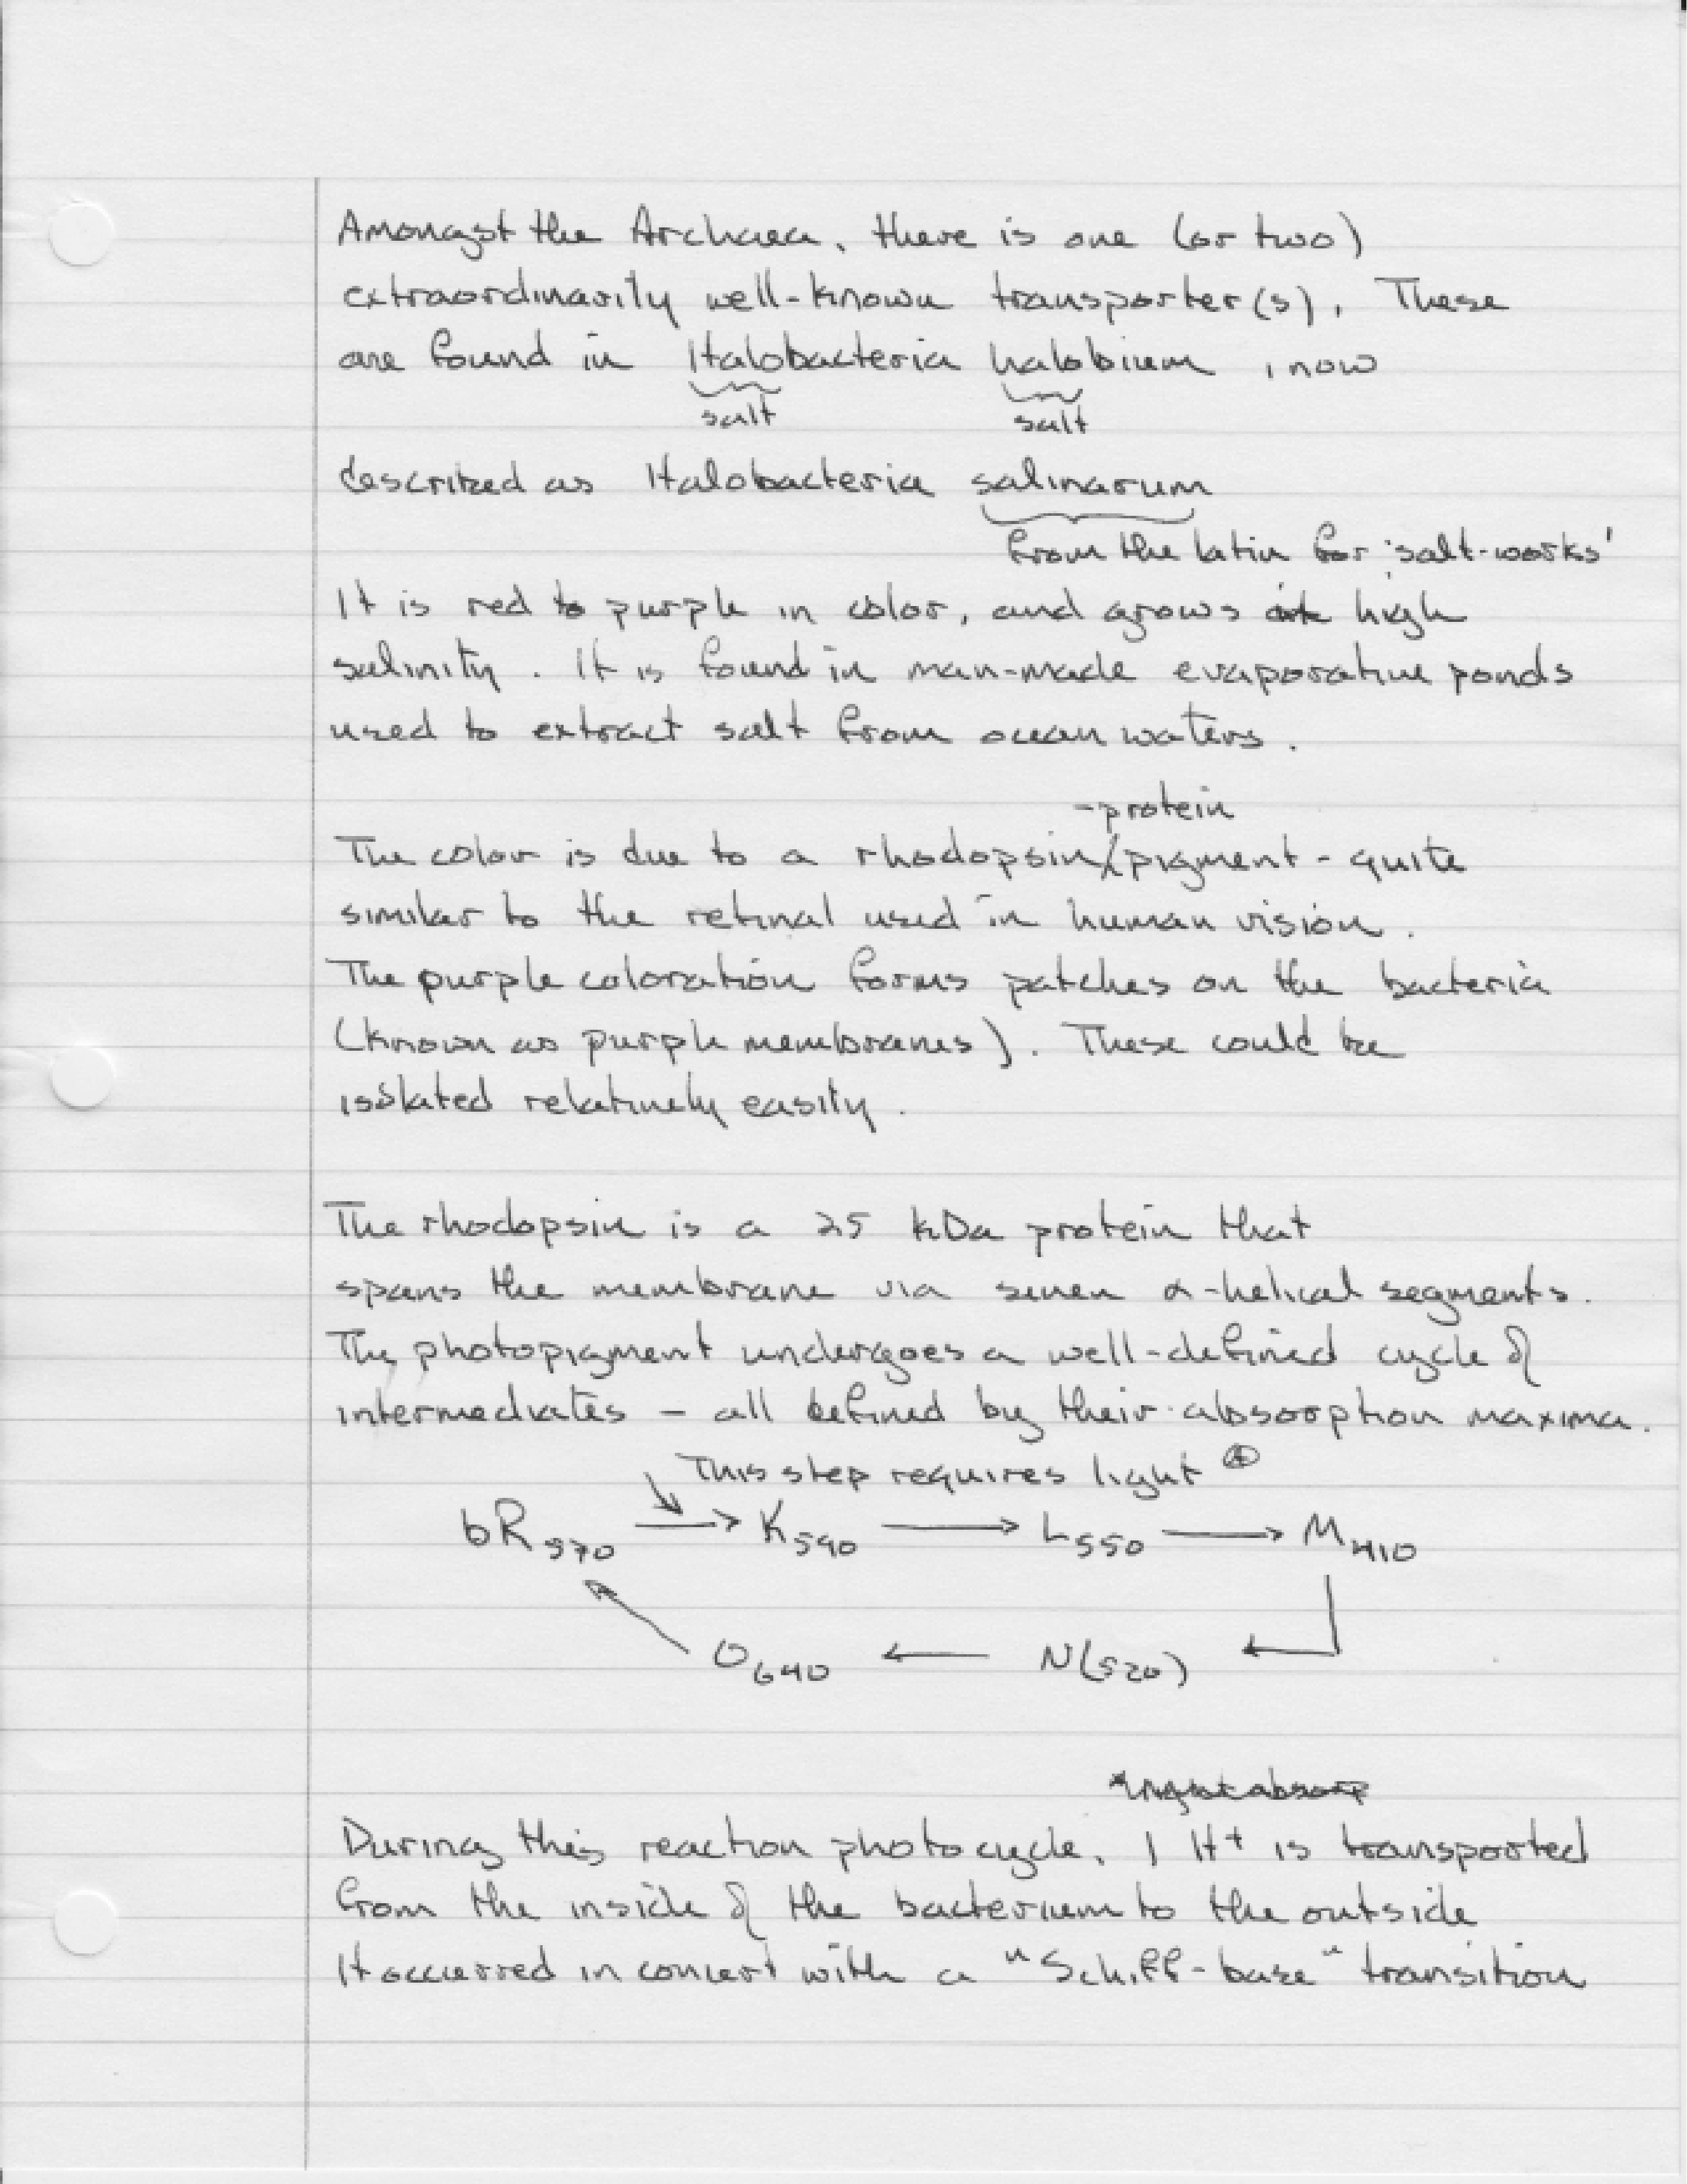 Amongst the Archaea, there is one (or two)
extraordinarily well-known transporter(s). These
are found in Halobacteria halobium, now
salt salt
described as Halobacteria salinarum
from the latin for 'salt-works'
It is red to purple in color, and grows at high
salinity. It is found in man-made evaporative ponds
used to extract salt from ocean waters.
-protein
The color is due to a rhodopsin/pigment - quite
similar to the retinal used in human vision.
The purple coloration forms patches on the bacteria
(known as purple membranes). These could be
isolated relatively easily.
The rhodopsin is a 25 kDa protein that
spans the membrane via seven α-helical segments.
The photopigment undergoes a well-defined cycle of
intermediates - all defined by their absorption maxima.
This step requires light
bR570 → K590 → L550 → M410
O640 ← N(520)
During this reaction photocycle, 1 H+ is transported
from the inside of the bacterium to the outside
It occurred in concert with a "Schiff-base" transition